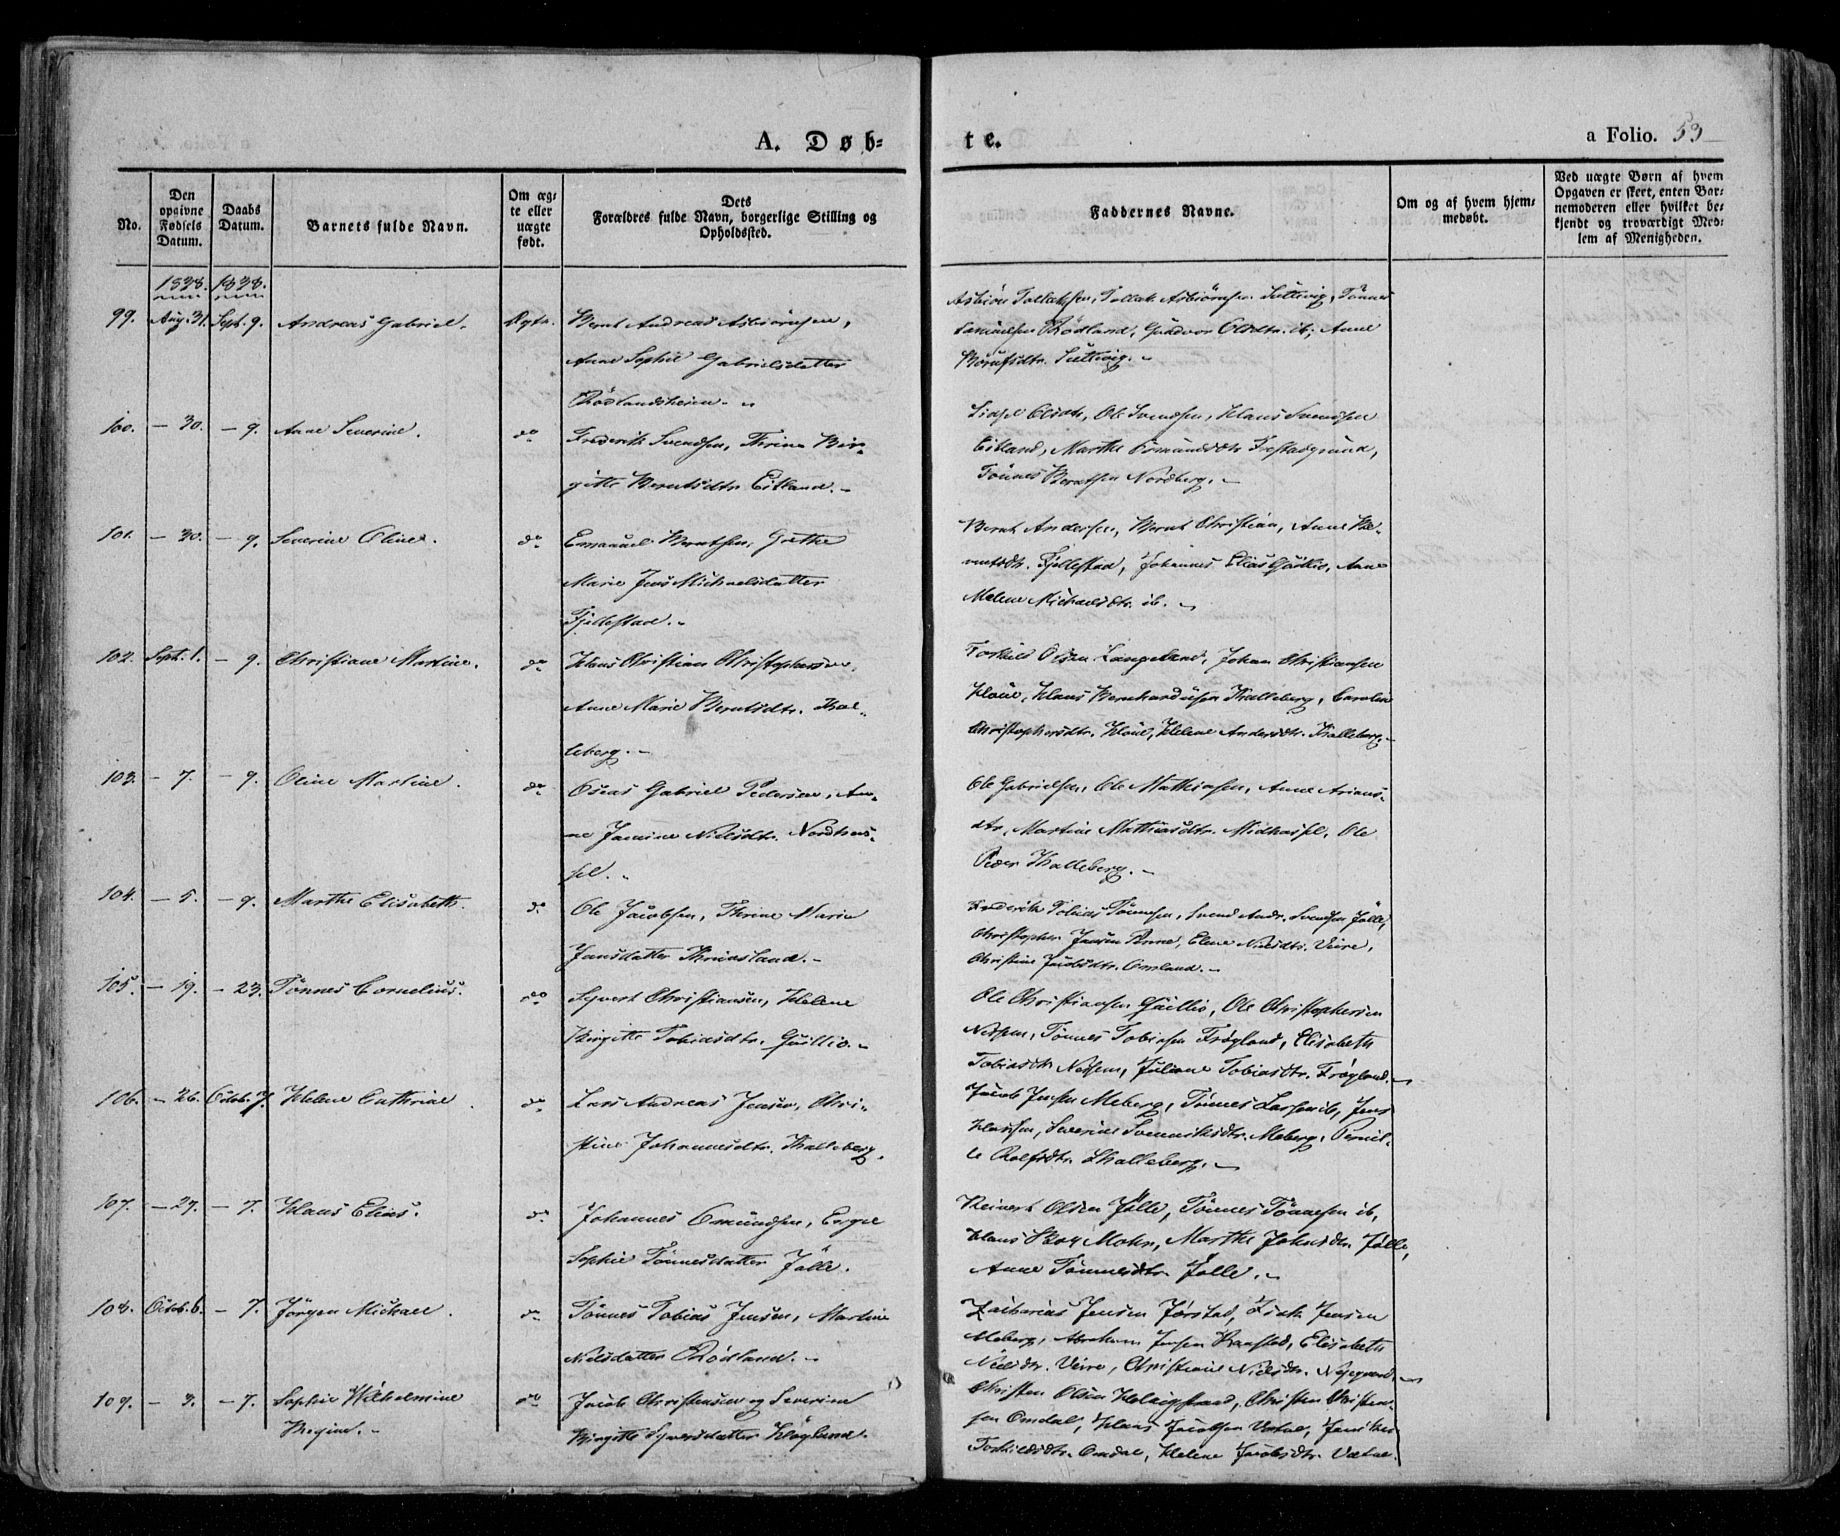 A. Døb=
te.
a Folio. 53
No.
Den opgivne Fødsels Datum.
Daabs Datum.
Barnets fulde Navn.
Om æg= te eller uægte født.
Dets Forældres fulde Navn, borgerlige Stilling og Opholdssted.
Faddernes Navne.
Om og af hvem hjem= medøbt.
Ved uægte Børn af hvem Opgaven er skert, enten Bar= nemoderen eller hvilket be= kjendt og troværdigt Med= lem af Menigheden.
1838. 1838.
99. Aug. 31. Sept. 9. Andreas Gabriel. Ægte. Bernt Andreas Asbiörnsen,
Anne Sophie Gabrielsdatter
Rödlandsheien.
Asbiörn Tollaksen, Tollak Asbiörnsen Lütevig, Tönnes
Rödland, Gundvor Olsdtr. ib, Anne
100. - 30. - 9. Anne Severine. do Frederik Svendsen, Thrine Bir-
gitte Berntsdtr. Eitland.
Sidsel Olsdtr, Ole Svendsen, Hans Svendsen
Eitland, Marthe Osmundsdtr Frestadgrund,
Tönnes Berntsen Nordberg.
101. - 30. - 9. Severine Oline. do Emanuel Berntsen, Grethe
Marie Jens Michaelsdatter
Fjellestad.
Bernt Andersen, Bernt Christian, Anne Be-
rentsdtr. Fjellestad, Johannes Elias Gullis, Anne
Malene Michaelsdtr. ib.
102. Sept. 1. - 9. Christiane Martine. do Hans Christian Christophersen,
Anne Marie Berntsdtr. Kal-
leberg.
Torkild Olsen Langeland, Johan Christiansen
Hans Bernhardusen Kalleberg, Caroline
Christophersdtr. Helene Andersdtr. Kalleberg.
103. - 7. - 9. Oline Martine. do Oseas Gabriel Pedersen, An-
ne Jamine Nielsdtr. Nordhas-
sel.
Ole Gabrielsen, Ole Mathiasen, Anne Arians-
dtr, Martine Mathiasdtr. Midhassel, Ole
Peder Kalleberg.
104. - 5. - 9. Marthe Elisabeth. do Ole Jacobsen, Thrine Marie
Jansdatter Thriusland.
Frederik Tobias Tönnesen, Svend Andr. Svendsen Jölle,
Christopher Jansen Elene Nielsdtr. Veire,
Christine Jacobsdtr. Omland.
105. - 19. - 23. Tönnes Cornelius. do Syvert Christiansen, Helene
Birgitte Tobiasdtr. Guillio.
Ole Christiansen Guillio, Ole Christophersen
Nesseen, Tönnes Tobiasen Frøyland, Elisabeth
Tobiasdtr Nessen, Juliane Tobiasdtr. Frøyland.
106. - 26. Octob. 7. Helene Cathrine. do Lars Andreas Jensen, Chri-
stine Johannesdtr. Kalleberg.
Jacob Jensen Meberg, Tönnes Larsen ib, Jens
Hansen, Severine Svennikedtr. Meberg, Pernil-
le Rolfsdtr. Kalleberg.
107. - 27. - 7. Hans Elias. do Johannes Omundsen, Engel
Sophie Tönnesdatter Jölle.
Reinert Olsen Jölle, Tönnes Tönnesen ib,
Hans Skov Mohn, Marthe Johnsdtr. Jölle,
Anne Tönnesdtr. Jölle.
108. Octob. 6. - 7. Jörgen Michael. do Tönnes Tobias Jensen, Martine
Nielsdatter Rödland.
Zacharias Jensen Jørstad, Isak Jensen
Meberg, Abraham Jensen Elisabeth
Nielsdtr. Veire, Christiane Nielsdtr.
109. - 3. - 7. Sophie Wilhelmine do Jacob Christensen og Severine
Regine. Birgitte Syversdatter Høyland.
Christen Olsen Helvigstrand, Christen Christen-
sen Omdal, Hans Jacobsen Vatne,
Torkildsdtr. Omdal, Helene Jacobsdtr. Vatne.